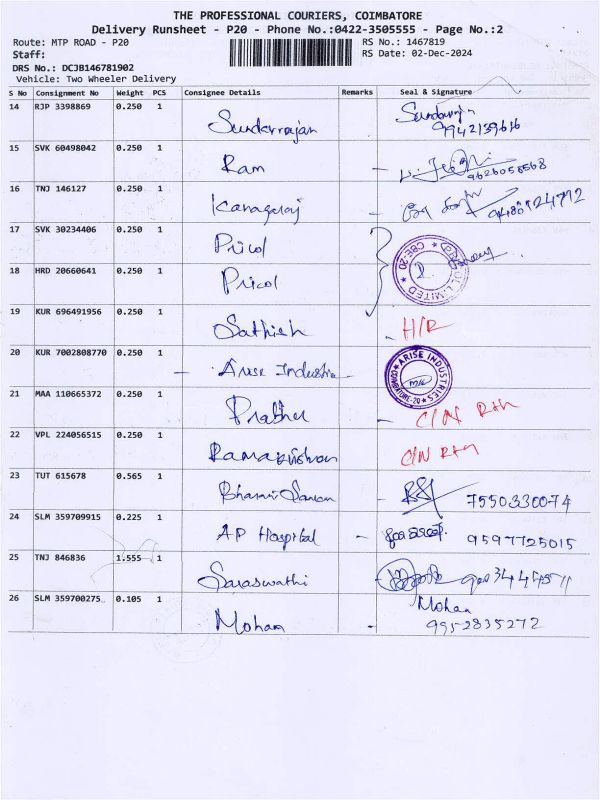 THE PROFESSIONAL COURIERS, COIMBATORE
Delivery Runsheet - P20 - Phone No.:0422-3505555 - Page No.:2
Route: MTP ROAD - P20 RS No.: 1467819
Staff: RS Date: 02-Dec-2024
DRS No.: DCJB146781902
Vehicle: Two Wheeler Delivery
S No Consignment No Weight PCS Consignee Details Remarks Seal & Signature
14 RJP 3398869 0.250 1 Sundarrajan Sundarrajan
9942139616
15 SVK 60498042 0.250 1 Ram - 9626058568
16 TNJ 146127 0.250 1 Kanagaraj -
17 SVK 30234406 0.250 1 Pricol LIMITED CBE-20
18 HRD 20660641 0.250 1 Pricol
19 KUR 696491956 0.250 1 Sathish - H/R
20 KUR 7002808770 0.250 1 - Arise Industries - ARISE INDUSTRIES COIMBATORE-20
21 MAA 110665372 0.250 1 Prabhu - C/N Rtn
22 VPL 224056515 0.250 1 Ramakrishnan C/N Rtn
23 TUT 615678 0.565 1 - 7550330074
24 SLM 359709915 0.225 1 AP Hospital - 9597725015
25 TNJ 846836 1.555 1 Saraswathi
26 SLM 359700275 0.105 1 Mohan - Mohan
9952835272